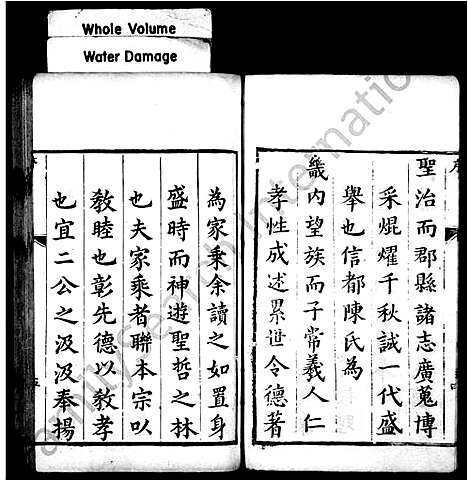 Whole Volume
Water Damage
聖治而郡縣諸志廣蒐博
采焜燿千秋誠一代盛
舉也信都陳氏為
畿内望族而子常羲人仁
孝性成述累世令德著
為家乘余讀之如置身
盛時而神遊聖哲之林
也夫家乘者聯本宗以
敎睦也彰先德以敎孝
也宜二公之汲汲奉揚